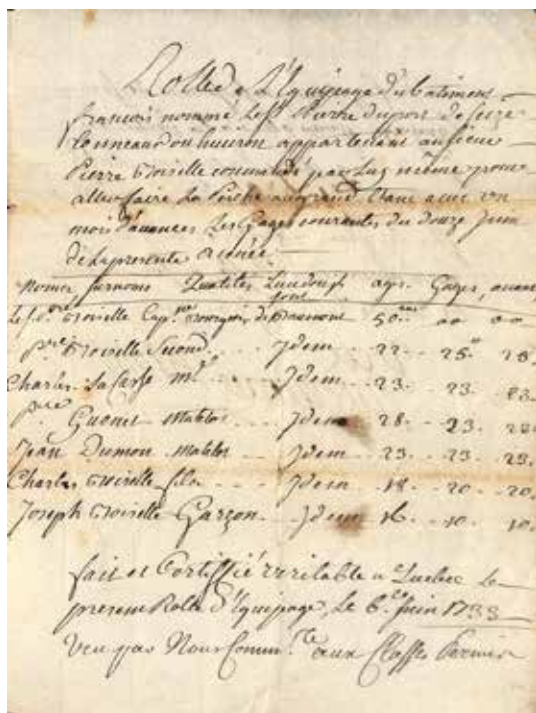 Rolle de L'Equipage du batiment
françois nommé Le st. Pierre du port de seize
tonneaux ou huiron appartenant au sieur
Pierre Groiselle commandé par Luy même pour
aller faire La Peiche au grand banc avec un
mois d'avances Les Gages courantes du douze Juin
de La presente année.
Noms surnoms Qualités Lieu d'ou ils sont ages Gages, avance
Le s. pre. Groiselle Cap.ne Bourgeois, de Beaumont 50. ans 00 00
pre. Groiselle Second. Idem 22. 25. 25.
Charles La Casse Idem 23. 23. 23.
pre Guenet Matelot Idem 28. 23. 23.
Jean Dumon Matelot Idem 23. 23. 23.
Charles Groiselle fils Idem 18. 20. 20.
Joseph Groiselle Garçon. Idem 16. 10. 10.
fait et Certiffié veritable a Quebec Le
present Rolle d'Equipage, Le 6.e Juin 1733
Veu par Nous Comm.re aux Classes